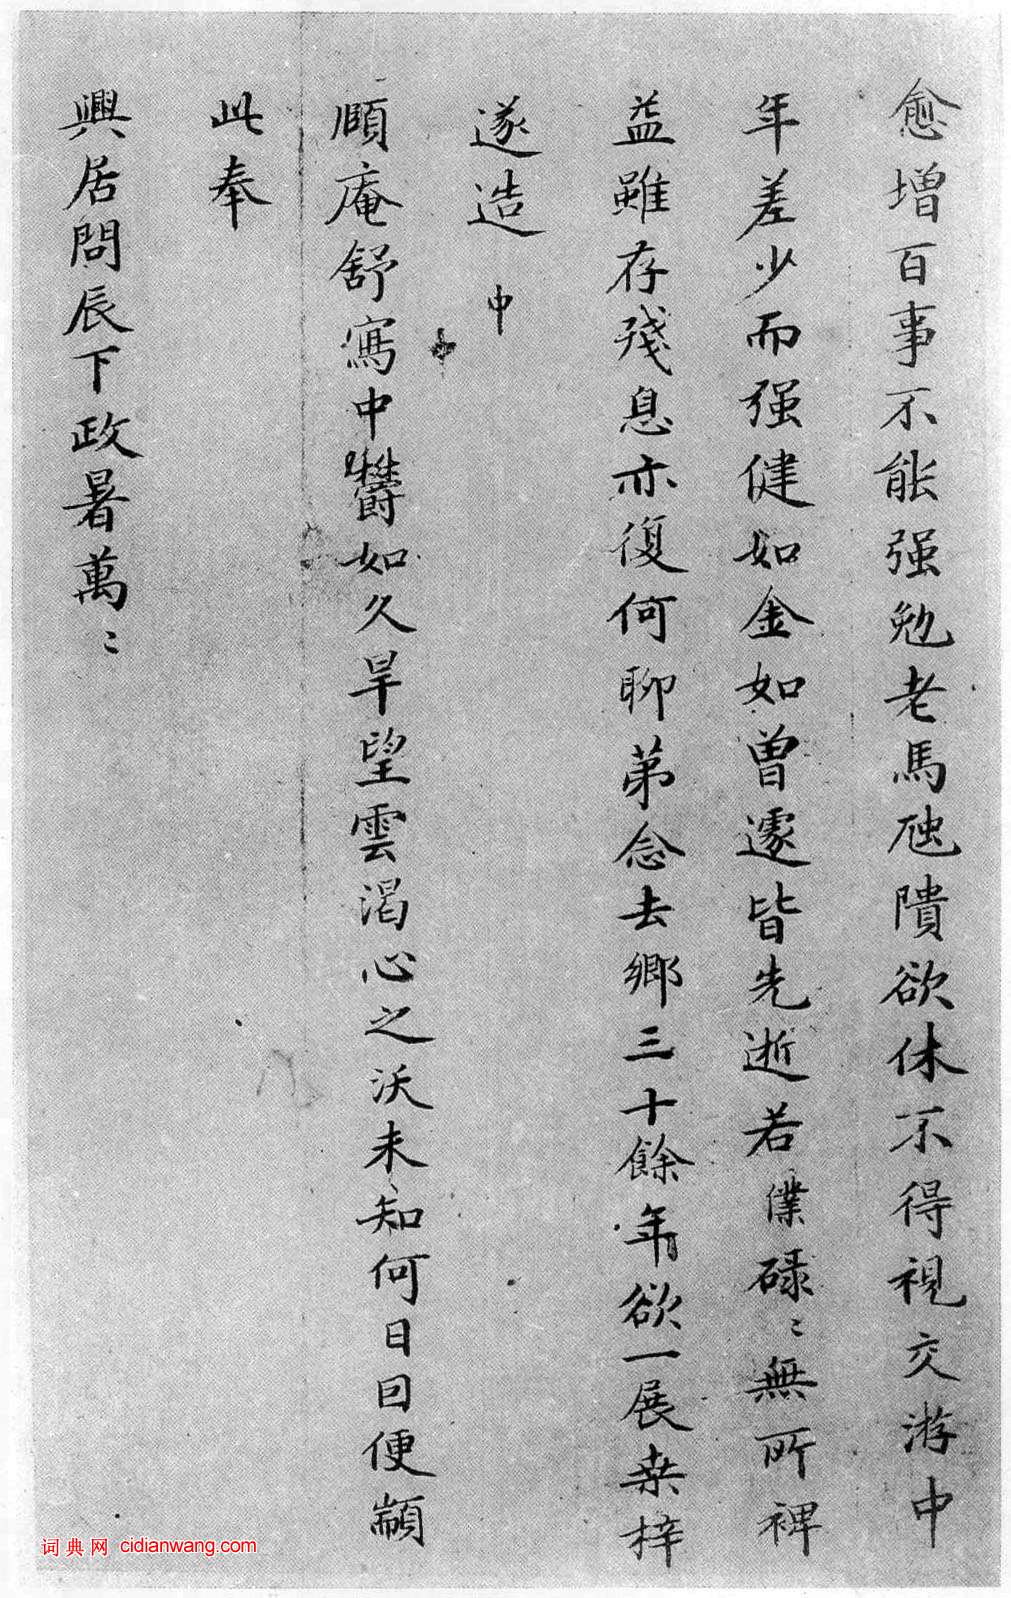 愈增百事不能强勉老馬虺隤欲休不得視交游中
年差少而强健如金如曾遽皆先逝若僕碌〻無所裨
益雖存殘息亦復何聊弟念去鄉三十餘年欲一展桒梓
遂造
中
頤庵舒寫中欝如久旱望雲渴心之沃未知何日因便顓
此奉
興居問辰下政暑萬〻
词典网 cidianwang.com